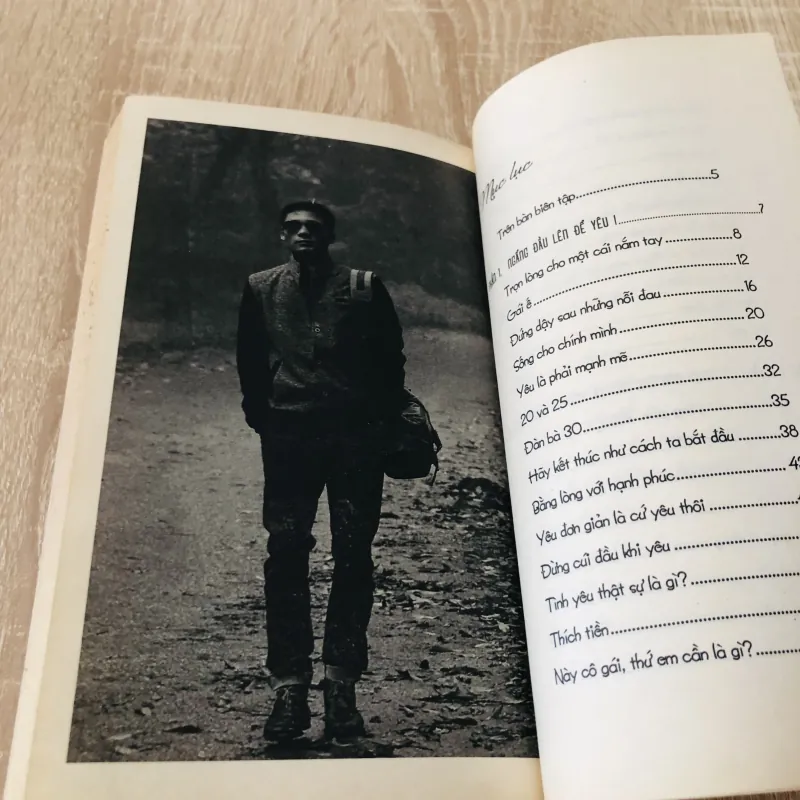 Mục lục
Trên bàn biên tập..................................5
1. NGẨNG ĐẦU LÊN ĐỂ YÊU !..................................7
Trọn lòng cho một cái nắm tay ................8
Gái ế..................................................12
Đứng dậy sau những nỗi đau ................16
Sống cho chính mình..............................20
Yêu là phải mạnh mẽ..............................26
20 và 25..............................................32
Đàn bà 30............................................35
Hãy kết thúc như cách ta bắt đầu ...........38
Bằng lòng với hạnh phúc........................
Yêu đơn giản là cứ yêu thôi ...................
Đừng cúi đầu khi yêu ............................
Tình yêu thật sự là gì?...........................
Thích tiền............................................
Này cô gái, thứ em cần là gì?...........